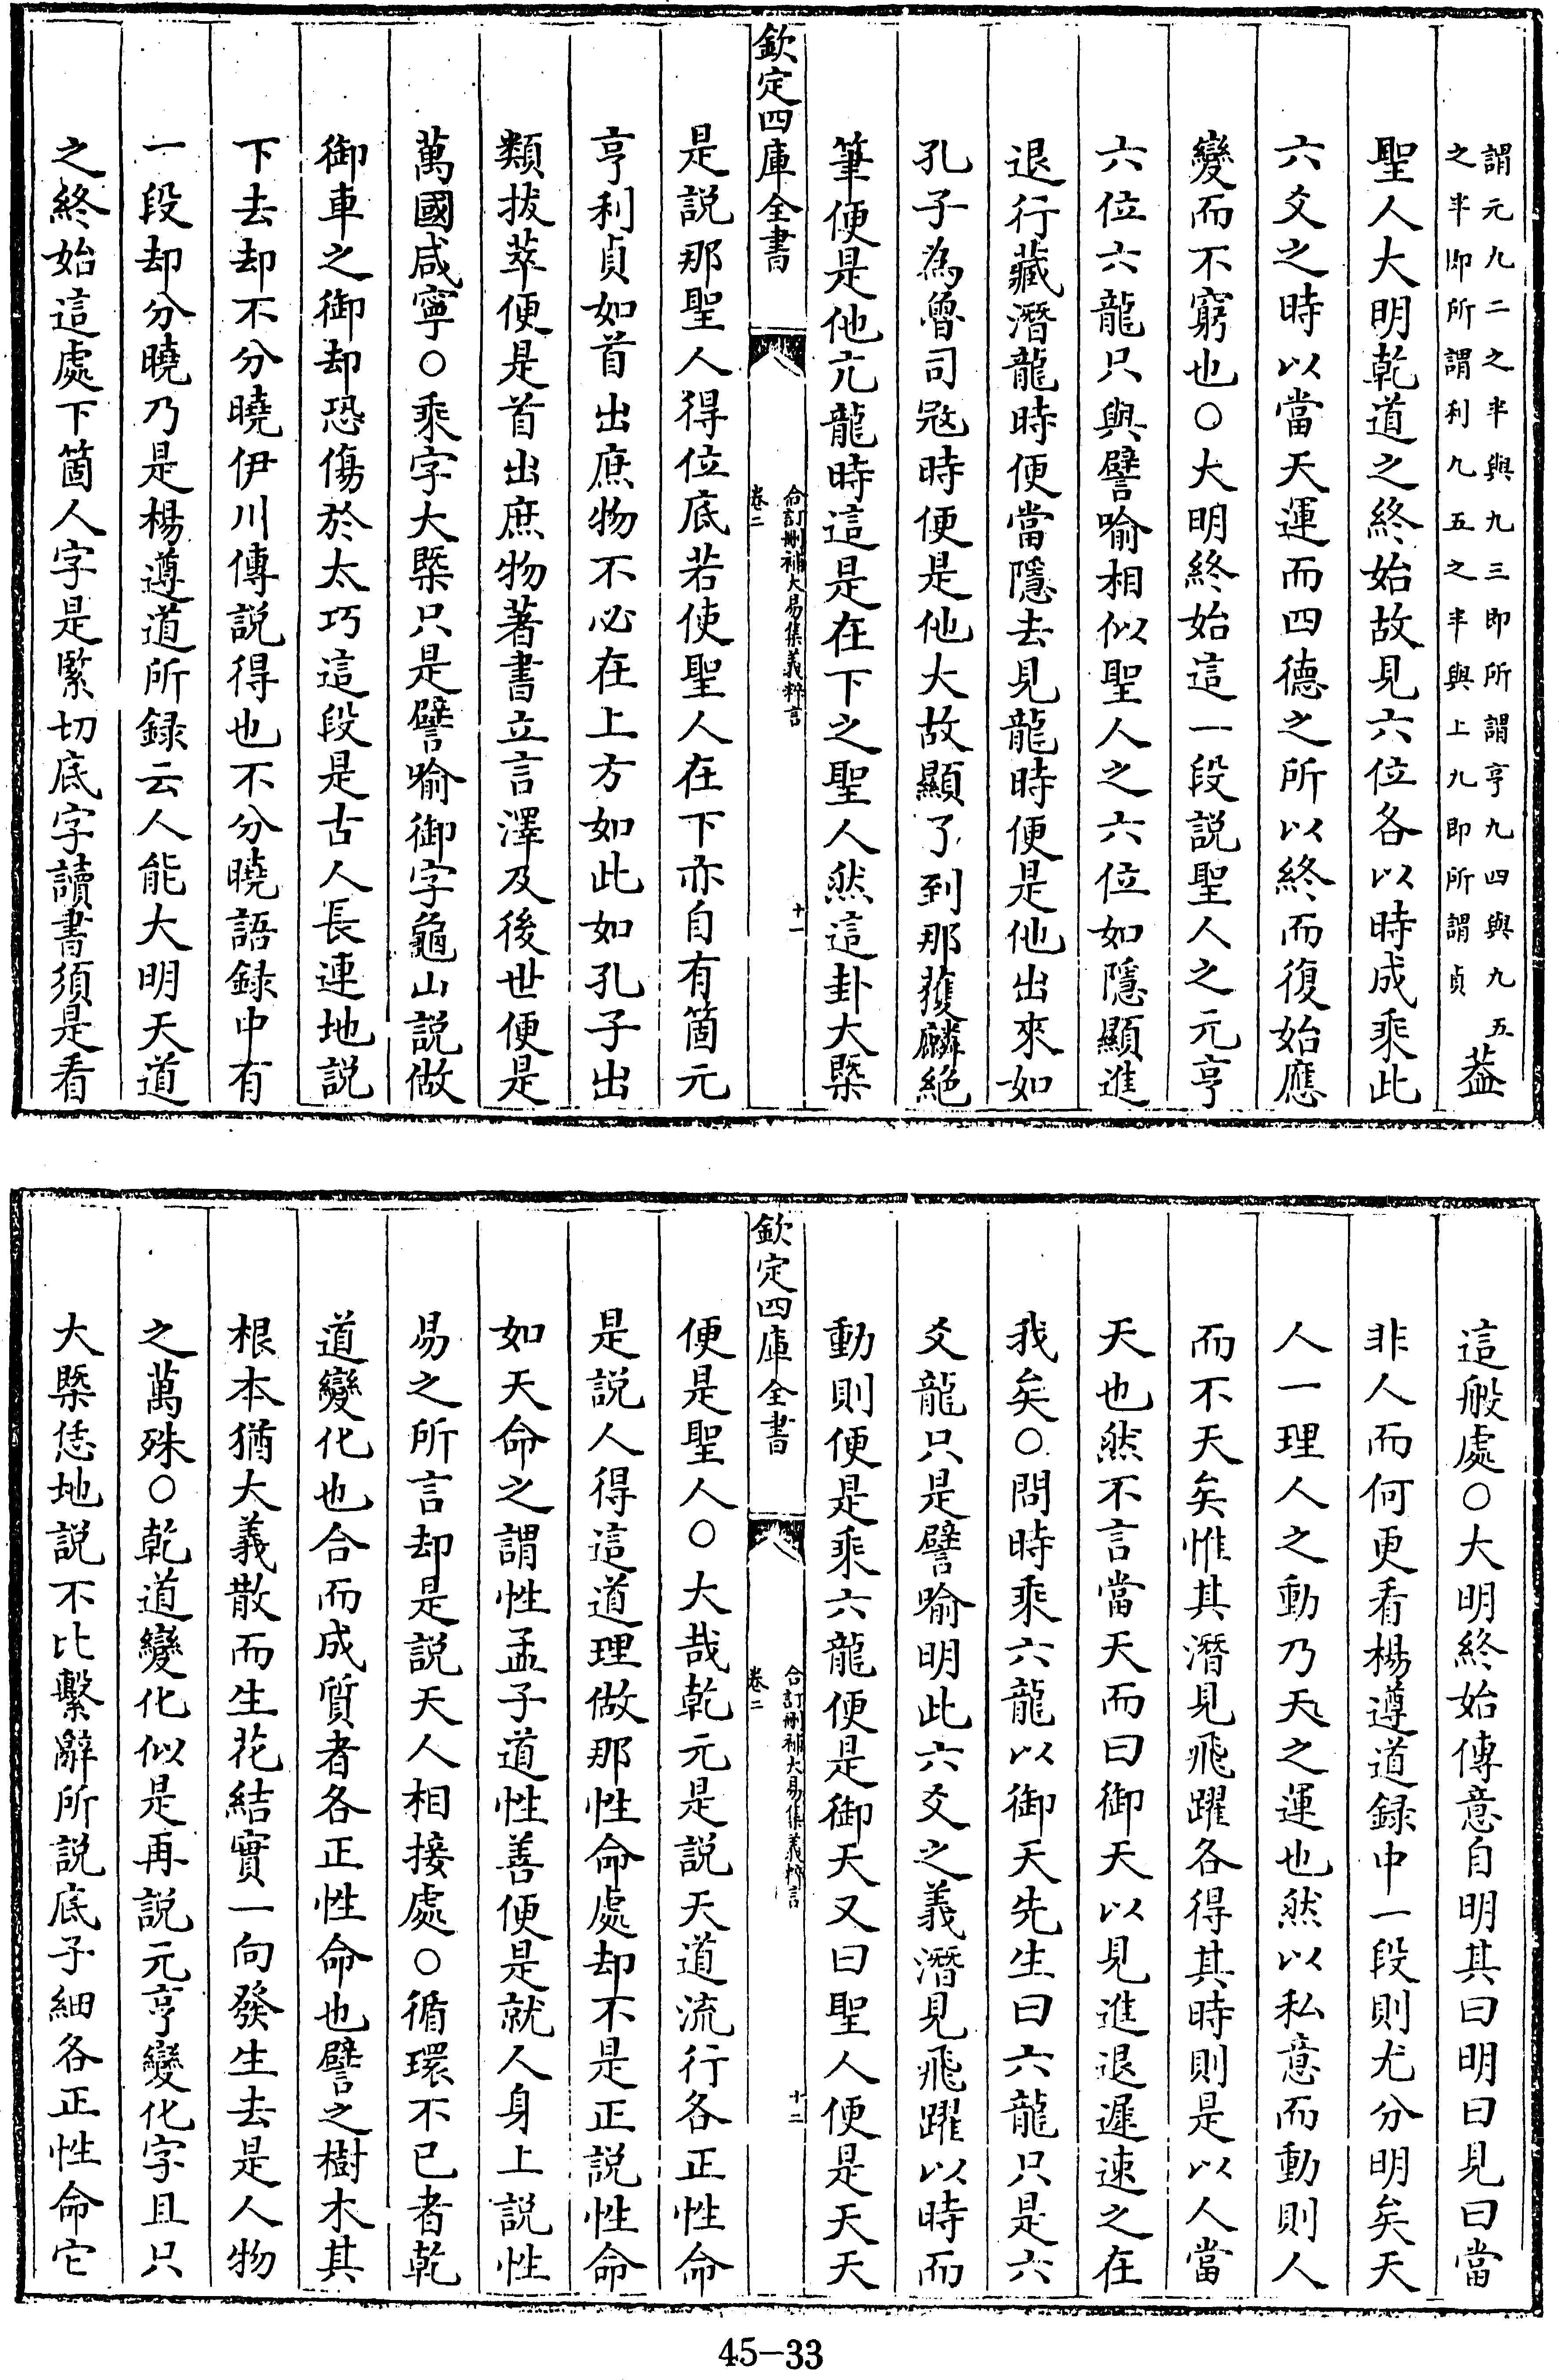 謂元九二之半與九三即所謂亨九四與九五
之半即所謂利九五之半與上九即所謂貞
葢
聖人大明乾道之終始故見六位各以時成乘此
六爻之時以當天運而四德之所以終而復始應
變而不窮也○大明終始這一段說聖人之元亨
六位六龍只與譬喻相似聖人之六位如隱顯進
退行藏潛龍時便當隱去見龍時便是他出來如
孔子為魯司冦時便是他大故顯了到那獲麟絕
筆便是他亢龍時這是在下之聖人然這卦大槩
欽定四庫全書
合訂刪補大易集義粹言
卷二
十一
是說那聖人得位底若使聖人在下亦自有箇元
亨利貞如首出庶物不必在上方如此如孔子出
類拔萃便是首出庶物著書立言澤及後世便是
萬國咸寧○乘字大槩只是譬喻御字龜山說做
御車之御却恐傷於太巧這段是古人長連地說
下去却不分曉伊川傳說得也不分曉語録中有
一段却分曉乃是楊遵道所録云人能大明天道
之終始這處下箇人字是緊切底字讀書須是看
這般處○大明終始傳意自明其曰明曰見曰當
非人而何更看楊遵道録中一段則尤分明矣天
人一理人之動乃天之運也然以私意而動則人
而不天矣惟其潛見飛躍各得其時則是以人當
天也然不言當天而曰御天以見進退遲速之在
我矣○問時乘六龍以御天先生曰六龍只是六
爻龍只是譬喻明此六爻之義潛見飛躍以時而
動則便是乘六龍便是御天又曰聖人便是天天
欽定四庫全書
合訂刪補大易集義粹言
卷二
十二
便是聖人○大哉乾元是說天道流行各正性命
是說人得這道理做那性命處却不是正說性命
如天命之謂性孟子道性善便是就人身上說性
易之所言却是說天人相接處○循環不已者乾
道變化也合而成質者各正性命也譬之樹木其
根本猶大義散而生花結實一向發生去是人物
之萬殊○乾道變化似是再說元亨變化字且只
大槩恁地說不比繫辭所說底子細各正性命它
45-33